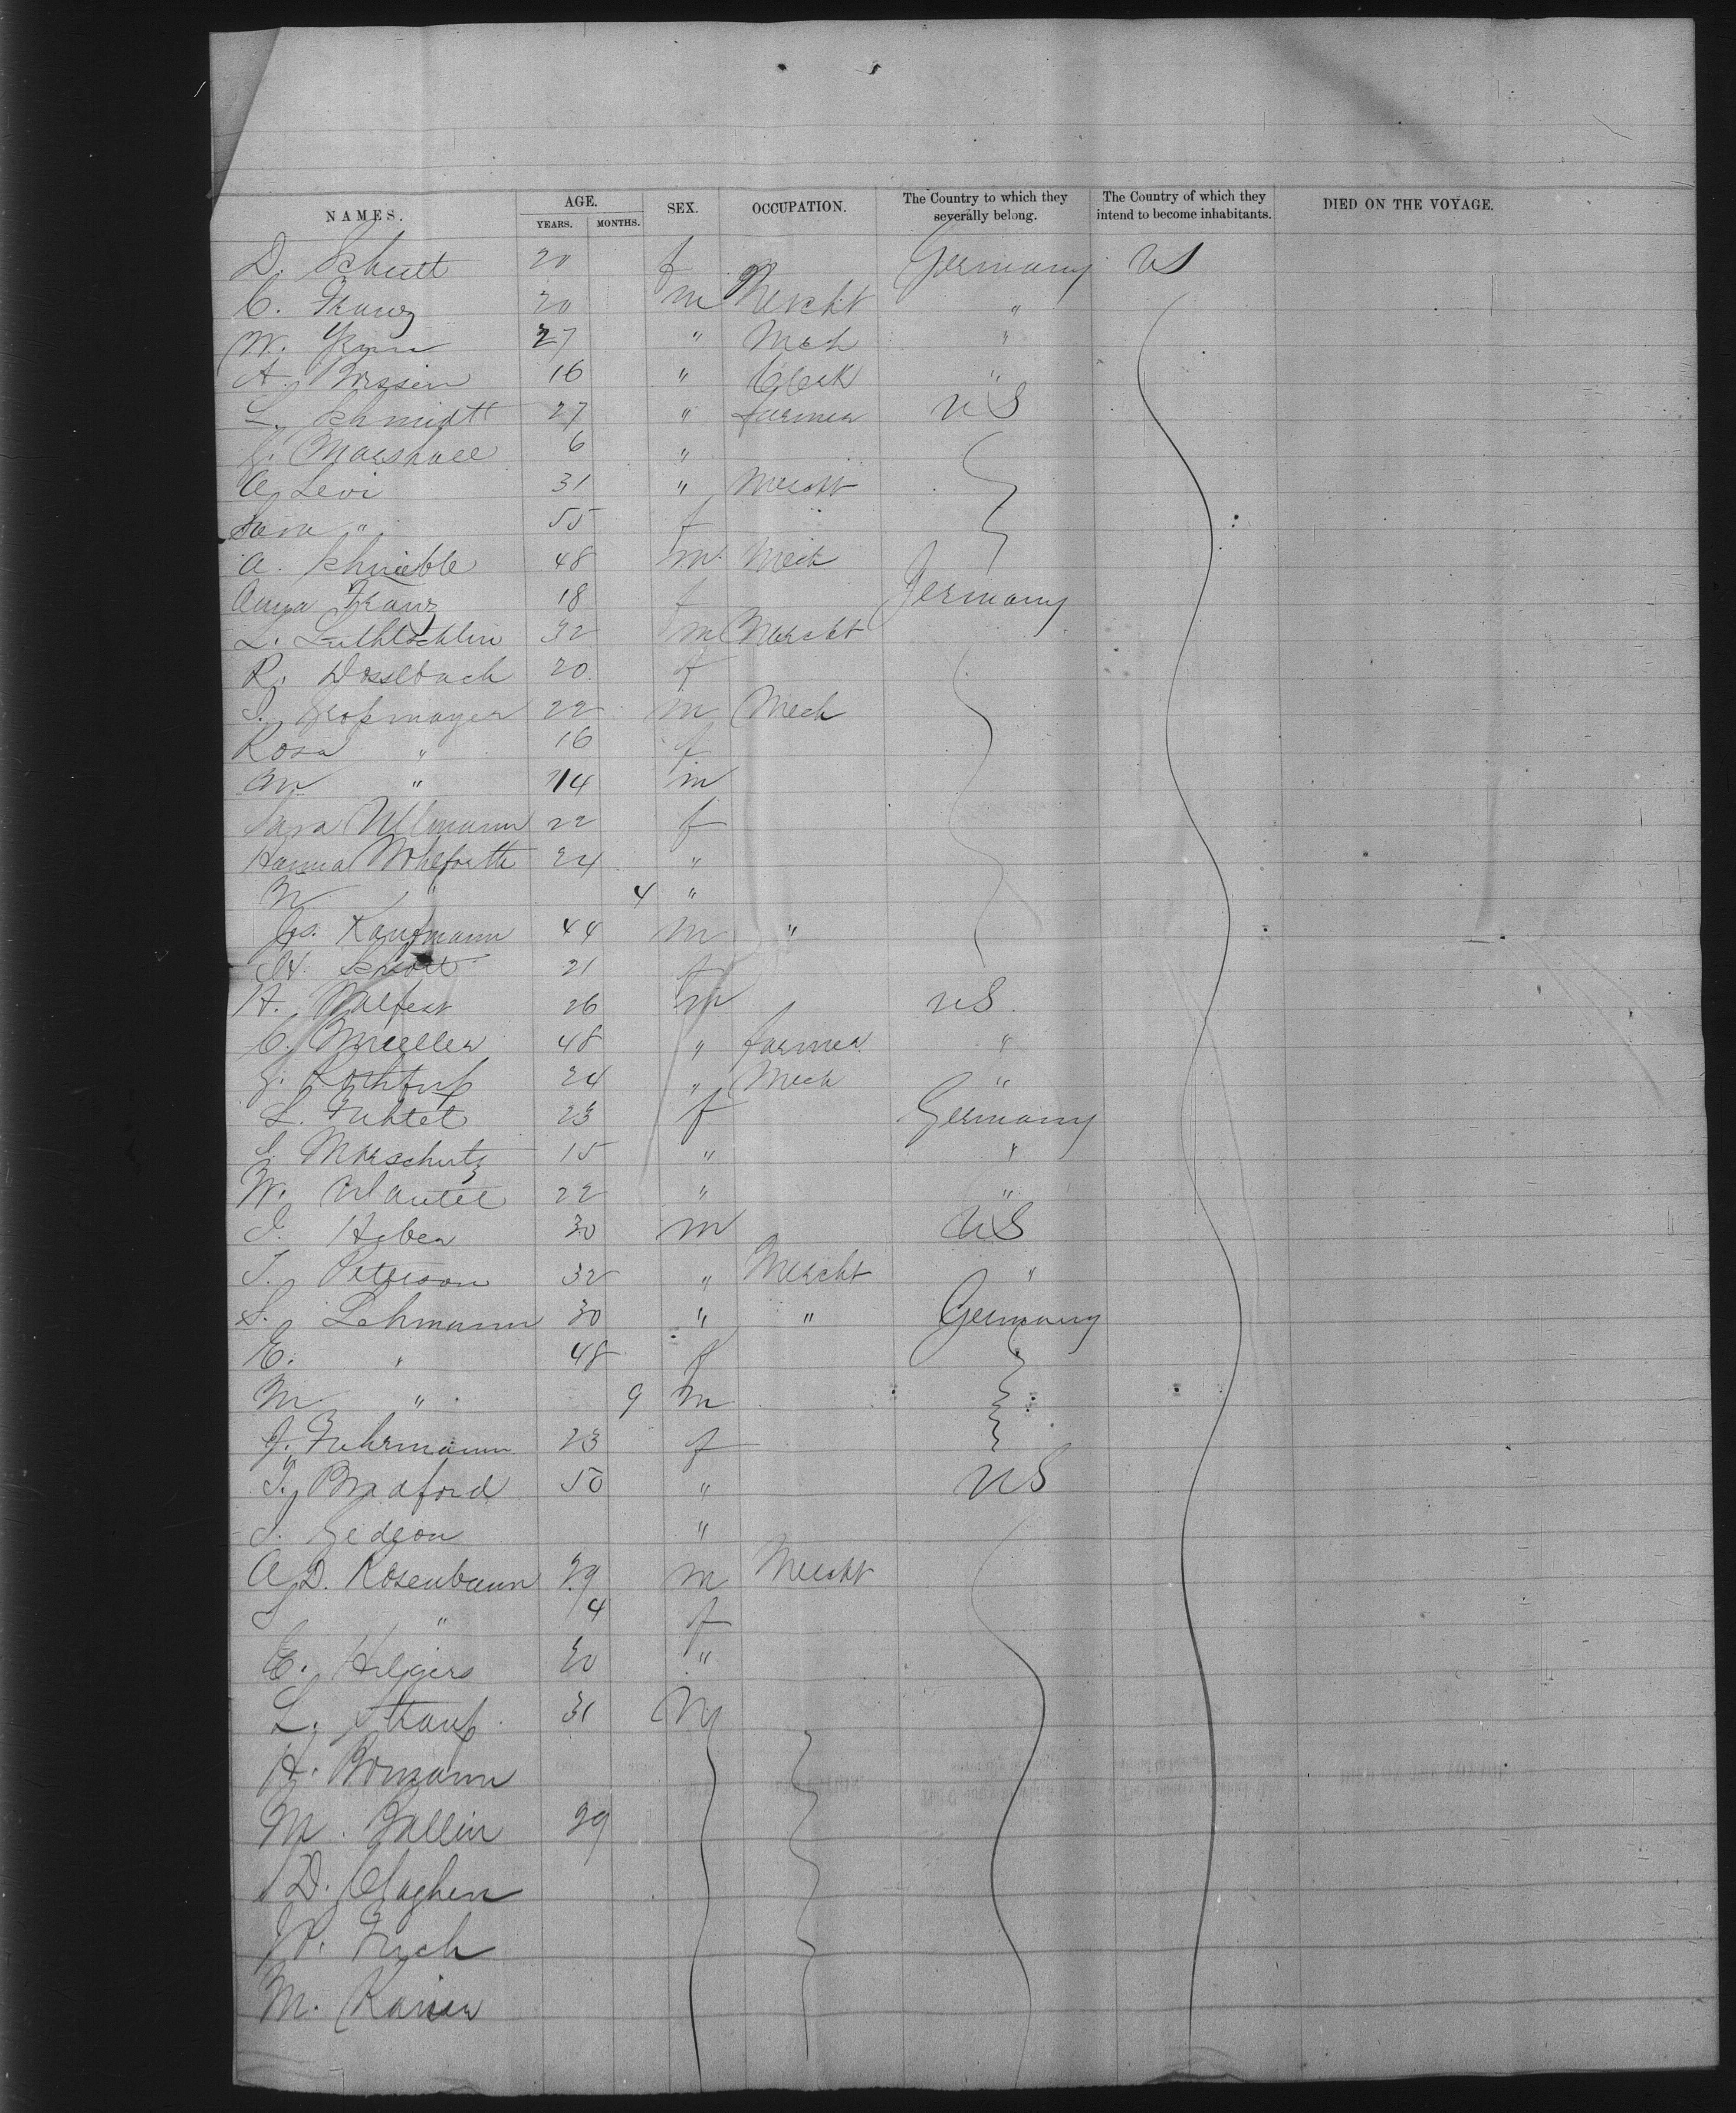 NAMES. AGE. YEARS. MONTHS. SEX. OCCUPATION. The Country to which they severally belong. The Country of which they intend to become inhabitants. DIED ON THE VOYAGE.
D. Schutt 20 f Germany US
C. Franz 20 m Mercht "
W. 27 " Mech "
A. 16 " Clerk "
L. Schmidtt 27 " farmer US
G. Marshall 6 "
A. Levi 31 " Mercht
Sara " 55 f
A. 48 m Mech
Anna Franz 18 f Germany
L. 32 m Mercht
R. Dosslbach 20 f
S. 22 m Mech
Rosa " 16 f
M " 14 m
Sara Ullmann 22 f
Hanna Wohlforth 24 "
M " 4 "
Jos. Kaufmann 44 m "
M. 21 f
H. 26 m US
C. Mueller 48 " farmer "
G. 24 " Mech "
L. 23 f Germany
S. Morschutz 15 " "
W. 22 " "
J. 30 m US
T. Peterson 32 " Mercht "
S. Lehmann 30 " " Germany
E. " 48 f
M " 9 m
J. Fuhrmann 23 f
T. Bradford 50 " US
J. Gedeon "
A. D. Rosenbaum 29 m Mercht
S " 4 f
E. Hilgers 20 "
L. 31 M
H. Bomann
M. Fallin 29
D.
W.
M. Kaiser